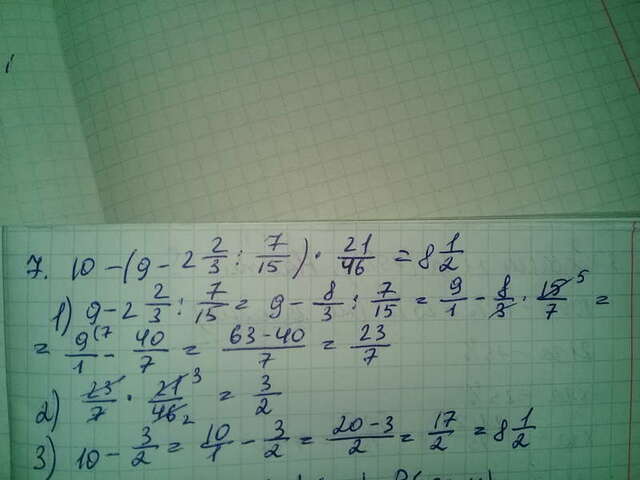 7. 10 - (9 - 2 2/3 : 7/15) · 21/46 = 8 1/2
1) 9 - 2 2/3 : 7/15 = 9 - 8/3 : 7/15 = 9/1 - 8/3 · 15 5/7 =
= 9 (7/1 - 40/7 = 63-40/7 = 23/7
2) 23/7 · 21 3/46 2 = 3/2
3) 10 - 3/2 = 10/1 - 3/2 = 20-3/2 = 17/2 = 8 1/2